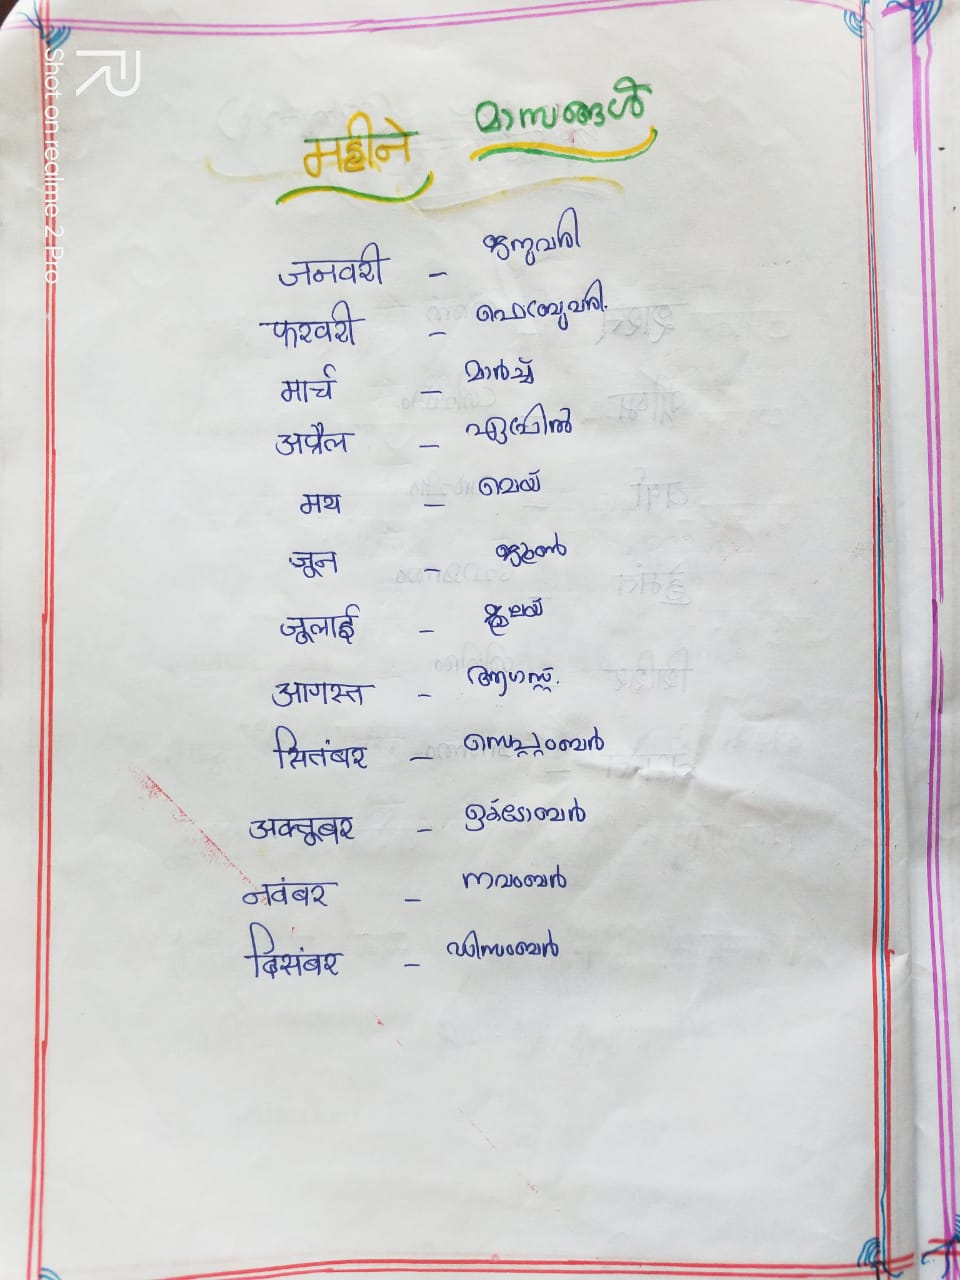 महीने മാസങ്ങൾ
जनवरी – ജനുവരി
फरवरी – ഫെബ്രുവരി.
मार्च – മാർച്ച്
अप्रैल – ഏപ്രിൽ
मय – മെയ്
जून – ജൂൺ
जूलाई – ജൂലയ്
आगस्त – ആഗസ്റ്റ്.
सितंबर – സെപ്റ്റംബർ
अक्तूबर – ഒക്ടോബർ
नवंबर – നവംബർ
दिसंबर – ഡിസംബർ
Shot on realme 2 Pro